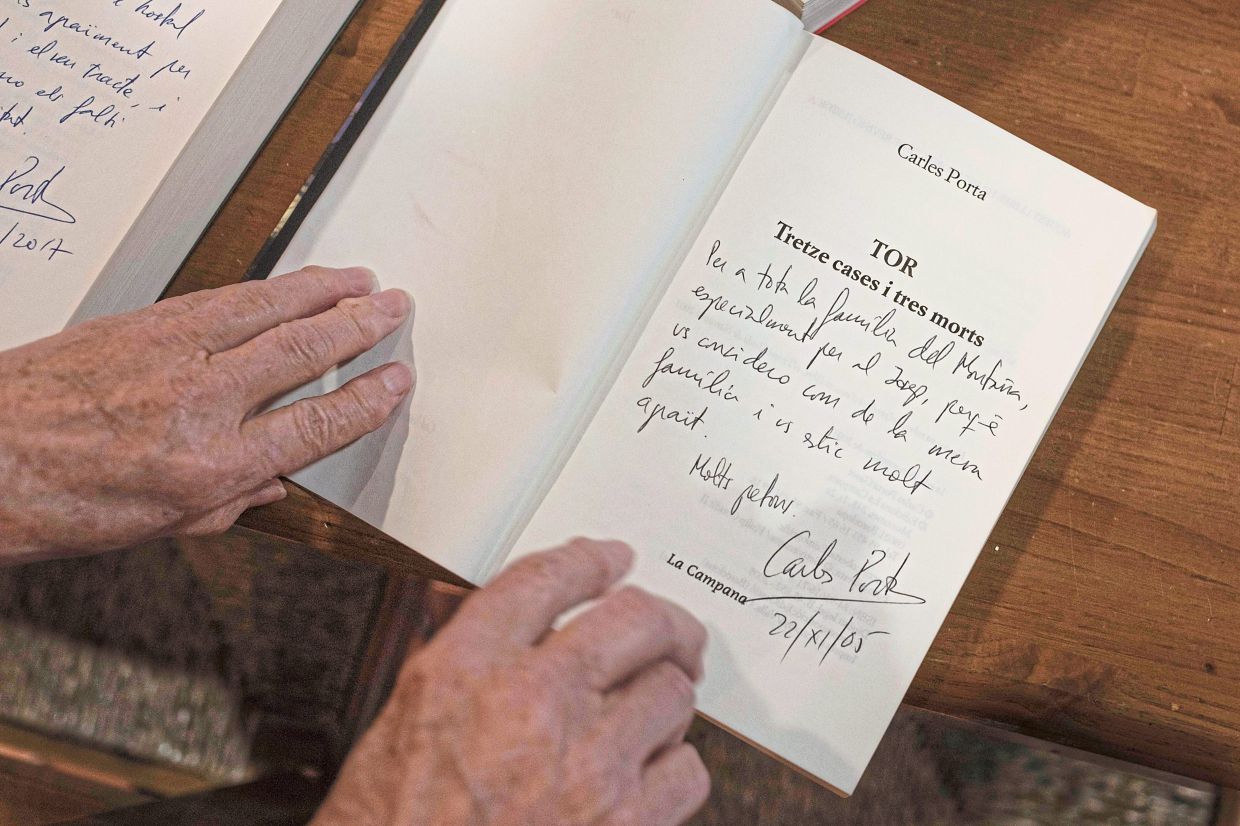 hostal
apaïment per
i el seu tracte, i
no els falti
Porta
/2017
Carles Porta
TOR
Tretze cases i tres morts
Per a tota la família del Montaña,
especialment per al Josep, perquè
us considero com de la meva
família i us estic molt
agraït.
Molts petons.
Carles Porta
La Campana
22/XI/05